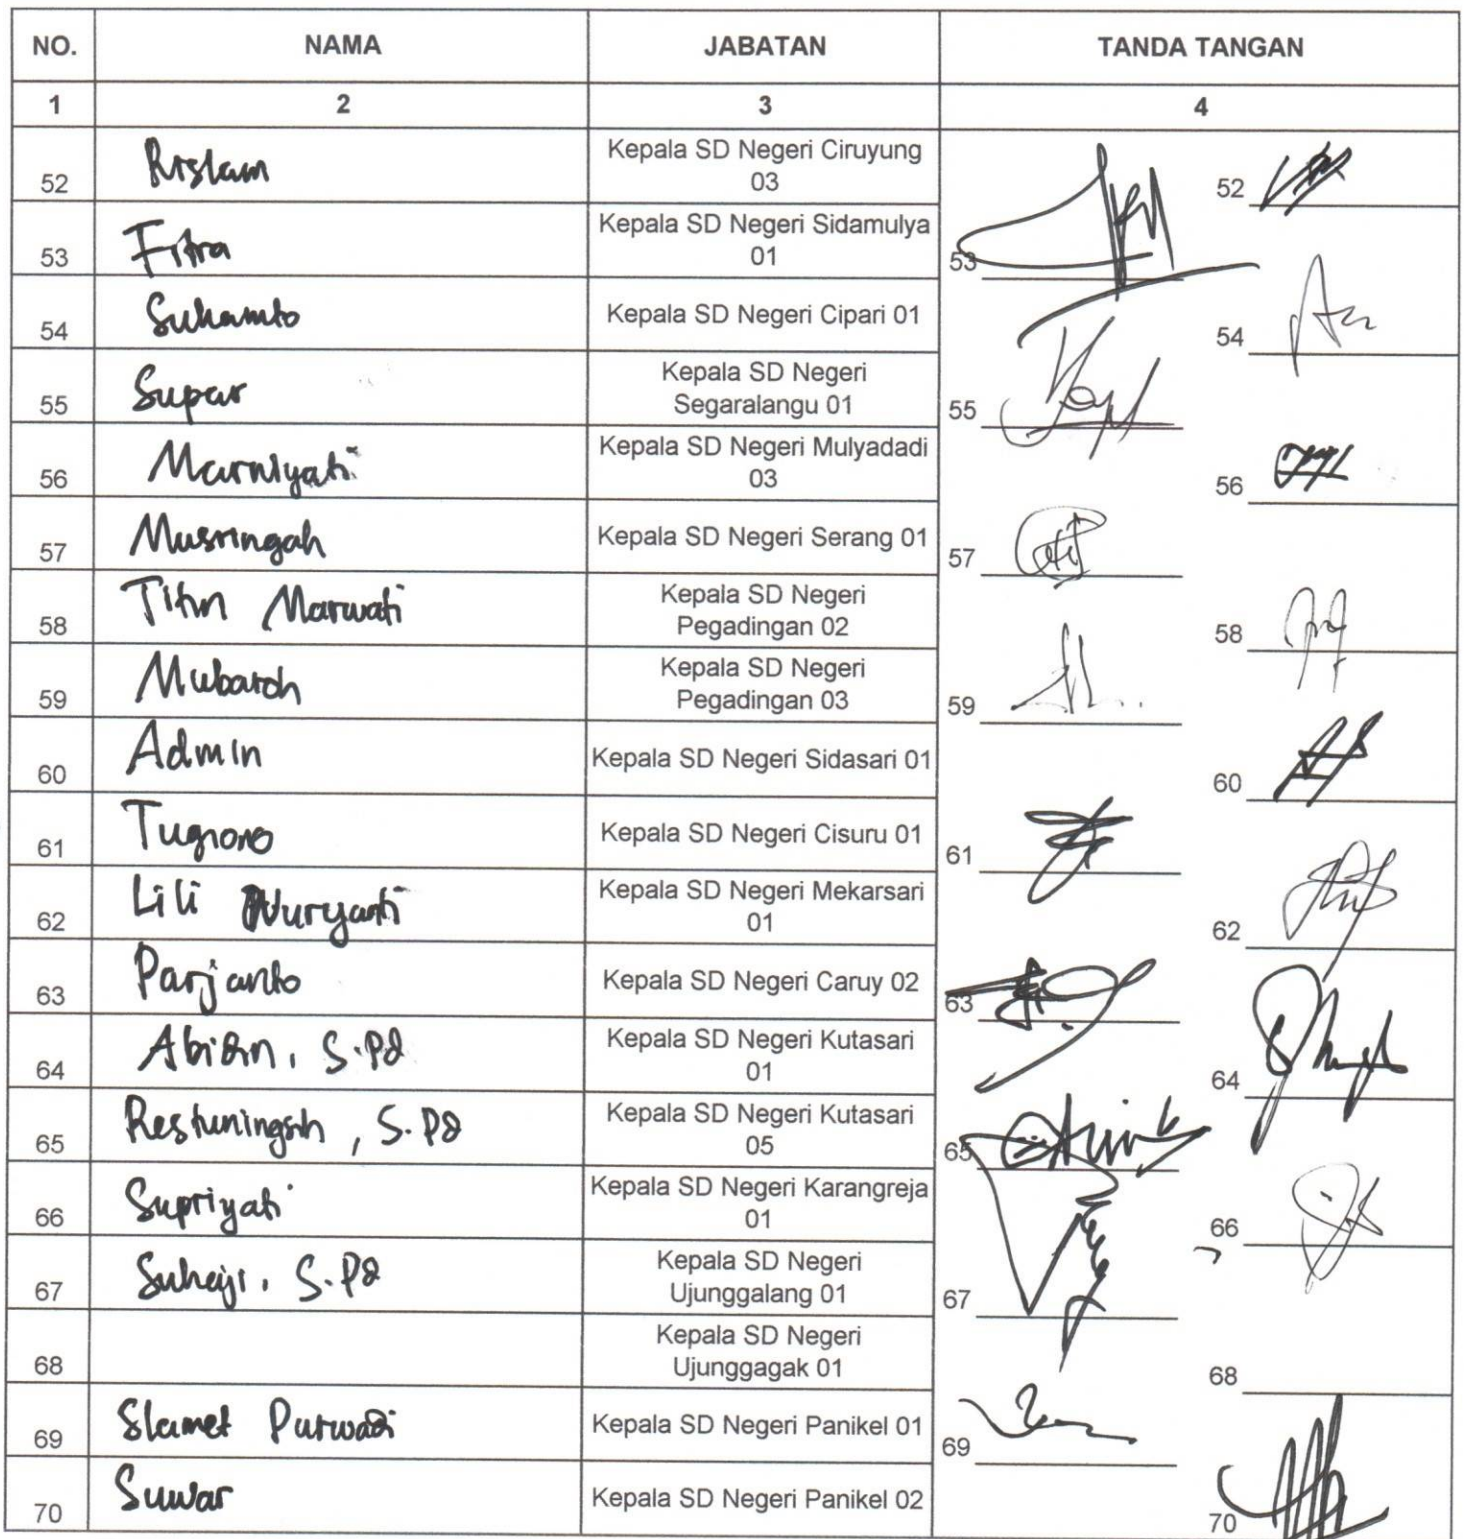 NO. NAMA JABATAN TANDA TANGAN
1 2 3 4
52 Rislam Kepala SD Negeri Ciruyung 03 52
53 Fitra Kepala SD Negeri Sidamulya 01 53
54 Suhamto Kepala SD Negeri Cipari 01 54
55 Supar Kepala SD Negeri Segaralangu 01 55
56 Marniyati Kepala SD Negeri Mulyadadi 03 56
57 Musringah Kepala SD Negeri Serang 01 57
58 Titin Marwati Kepala SD Negeri Pegadingan 02 58
59 Mubaroh Kepala SD Negeri Pegadingan 03 59
60 Admin Kepala SD Negeri Sidasari 01 60
61 Tugiono Kepala SD Negeri Cisuru 01 61
62 Lili Nuryanti Kepala SD Negeri Mekarsari 01 62
63 Parjanto Kepala SD Negeri Caruy 02 63
64 Abidin, S.Pd Kepala SD Negeri Kutasari 01 64
65 Restuningsih, S.Pd Kepala SD Negeri Kutasari 05 65
66 Supriyati Kepala SD Negeri Karangreja 01 66
67 Suharji, S.Pd Kepala SD Negeri Ujunggalang 01 67
68 Kepala SD Negeri Ujunggagak 01 68
69 Slamet Purwadi Kepala SD Negeri Panikel 01 69
70 Suwar Kepala SD Negeri Panikel 02 70